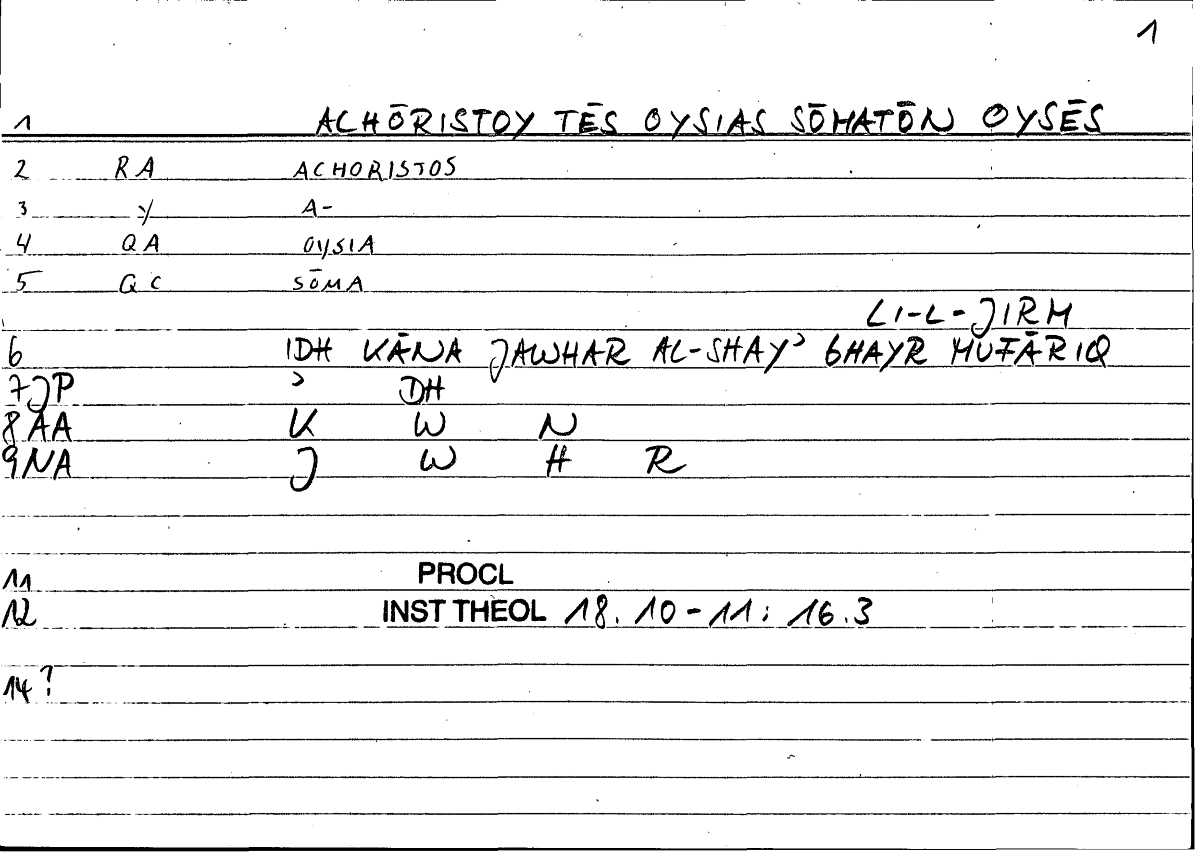 1
1 ACHŌRISTOY TĒS OYSIAS SŌMATŌN OYSĒS
2 RA ACHORISTOS
3 Y A-
4 QA OYSIA
5 QC SŌMA
LI-L-JIRM
6 IDH KĀNA JAWHAR AL-SHAYʾ GHAYR MUFĀRIQ
7 JP ʾ DH
8 AA K W N
9 NA J W H R
11 PROCL
12 INST THEOL 18.10-11: 16.3
14 ?